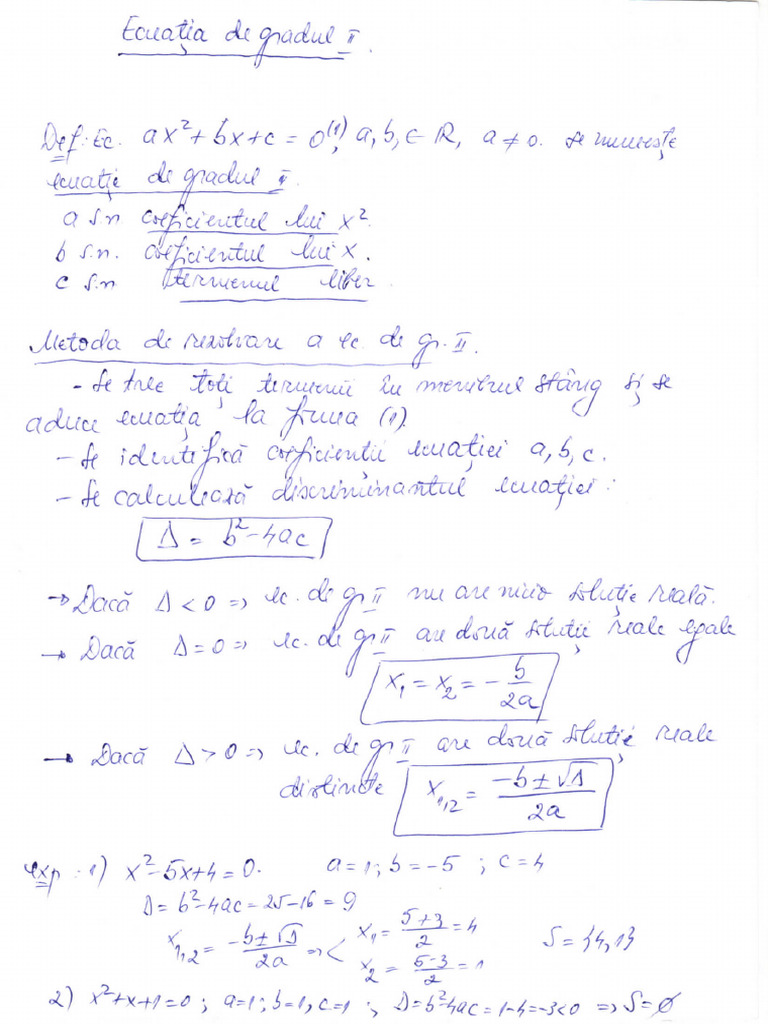 Ecuația de gradul II.
Def: Ec. ax² + bx + c = 0 (1), a, b, c ∈ R, a ≠ 0. se numește
ecuație de gradul II.
a s.n coeficientul lui x².
b s.n. coeficientul lui x.
c s.n termenul liber
Metoda de rezolvare a ec. de gr. II.
- Se trec toți termenii în membrul stâng și se
aduce ecuația la forma (1)
- Se identifică coeficienții ecuației a, b, c.
- Se calculează discriminantul ecuației:
Δ = b² - 4ac
→ Dacă Δ < 0 => ec. de gr II nu are nicio soluție reală.
→ Dacă Δ = 0 => ec. de gr II are două soluții reale egale
x₁ = x₂ = -b/2a
→ Dacă Δ > 0 => ec. de gr II are două soluții reale
distincte x₁,₂ = (-b ± √Δ)/2a
exp: 1) x² - 5x + 4 = 0. a = 1; b = -5; c = 4
Δ = b² - 4ac = 25 - 16 = 9
x₁,₂ = (-b ± √Δ)/2a => < x₁ = (5+3)/2 = 4 S = {4, 1}
x₂ = (5-3)/2 = 1
2) x² + x + 1 = 0; a = 1; b = 1, c = 1; Δ = b² - 4ac = 1 - 4 = -3 < 0 => S = ∅